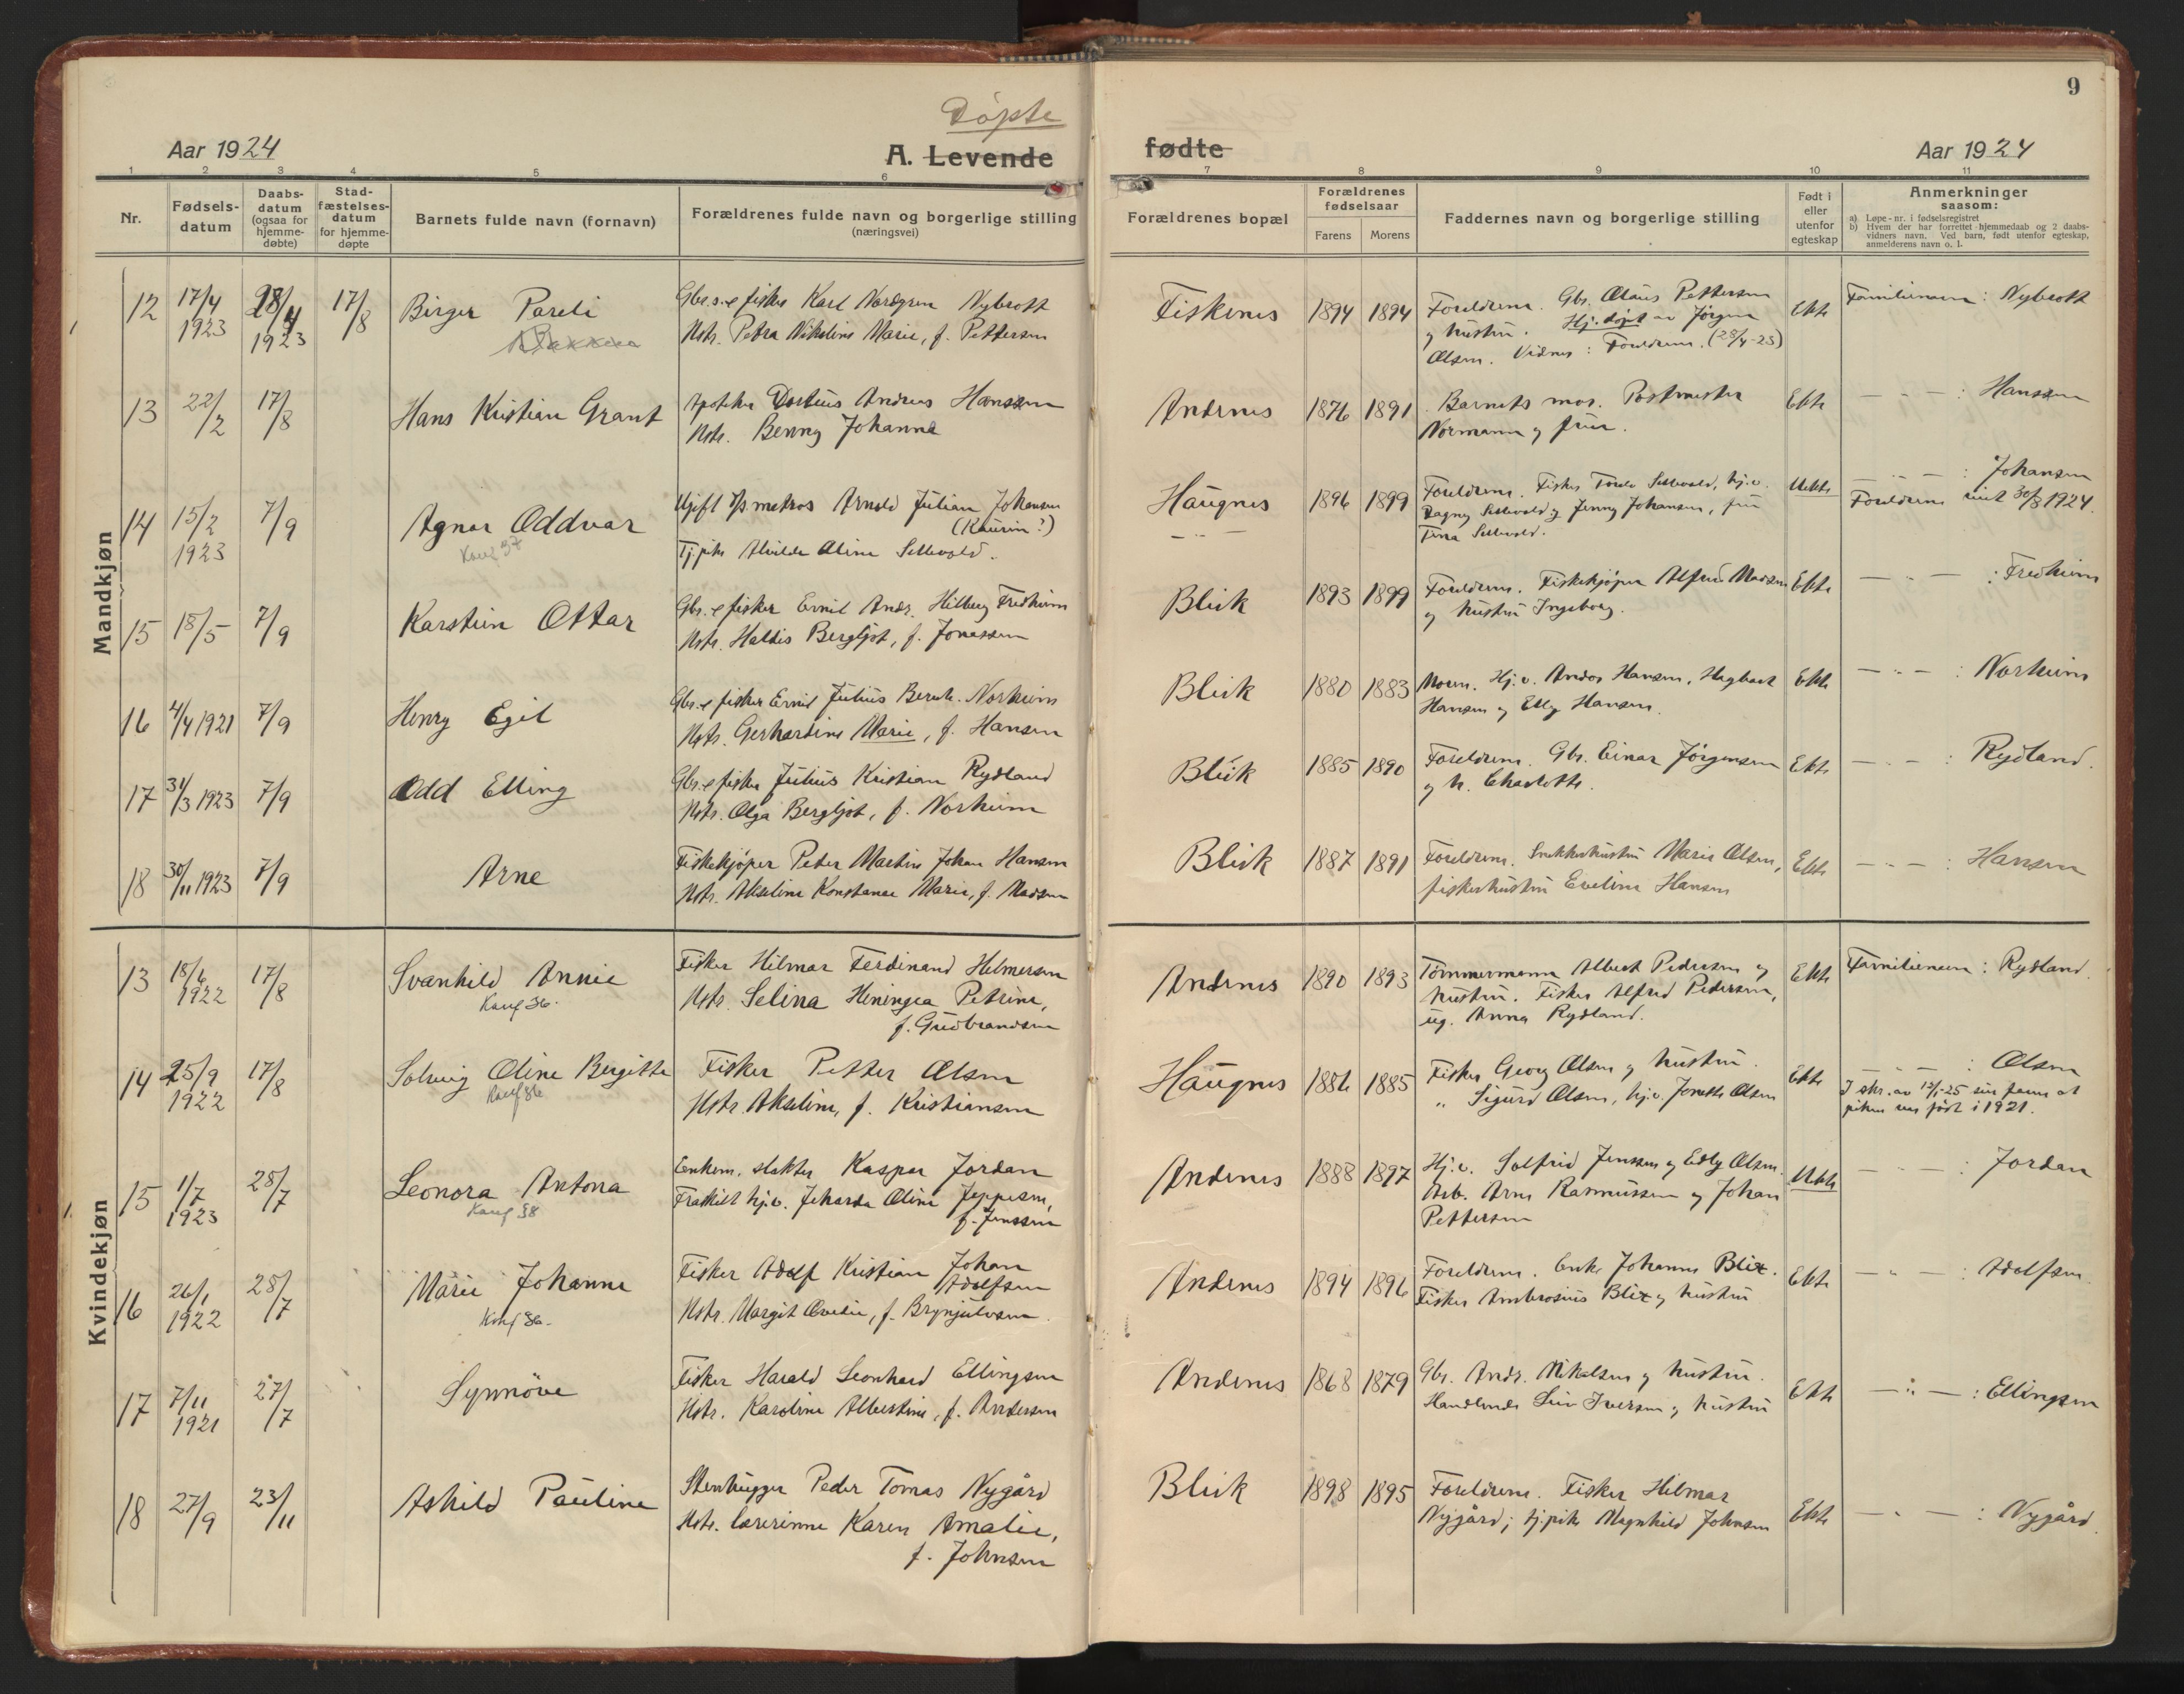 9
Døpte
Aar 1924
A. Levende
fødte
Aar 1924
1 2 3 4 5 6 7 8 9 10 11
Nr.
Fødsels-
datum
Daabs-
datum
(ogsaa for
hjemme-
døbte)
Stad-
fæstelses-
datum
for hjemme-
døpte
Barnets fulde navn (fornavn)
Forældrenes fulde navn og borgerlige stilling
(næringsvei)
Forældrenes bopæl
Forældrenes
fødselsaar
Farens Morens
Faddernes navn og borgerlige stilling
Født i
eller
utenfor
egteskap
Anmerkninger
saasom:
a) Løpe-nr. i fødselsregistret
b) Hvem der har forrettet hjemmedaab og 2 daabs-
vidners navn. Ved barn, født utenfor egteskap,
anmelderens navn o. l.
Mandkjøn
12 17/4 1923 28/4 1923 17/8 Birger Pareli
Gbr.s. & fisker Karl Nordgren Nybrott
Hstr. Petra Nikoline Marie, f. Pettersen
Fiskenes 1894 1894
Foreldrene. Gbr. Olaus Pettersen
og hustru. Hj. døpt av Jørgen
Olsen. Vidner: Foreldrene. (28/4-23)
Ekte Familienavn: Nybrott
13 22/2 17/8 Hans Kristian Grant
Apoteker Andreas Hanssen
Hstr. Benny Johanne
Andenes 1876 1891
Barnets mor. Postmester
Normann og frue.
Ekte — " — : Hanssen
14 15/2 1923 7/9 Agnar Oddvar
Konf 37
Ugift matros Arnold Julian Johansen
(Kaurin?)
Tj.pike Alvilde Aline Sellevold.
Haugnes 1896 1899
Foreldrene. Fisker Sellevold, hj.v.
Dagny Sellevold og Jenny Johansen, frue
Tina Sellevold.
Uekte — " — : Johansen
Foreldrene viet 30/8 1924.
15 18/5 7/9 Karstein Ottar
Gbr. & fisker Emil Andr. Hilberg Fredheim
Hstr. Haldis Bergljot, f. Jonassen
Bleik 1893 1899
Foreldrene. Fiskekjøper Alfred Madsen
og hustru Ingeborg.
Ekte — " — : Fredheim
16 4/4 1921 7/9 Henry Egil
Gbr. & fisker Emil Julius Bernh. Norheim
Hstr. Gerhardine Marie, f. Hansen
Bleik 1880 1883
Moren. Hj.v. Andor Hansen, Hagbart
Hansen og Elly Hansen.
Ekte — " — : Norheim
17 31/3 1923 7/9 Odd Elling
Gbr. & fisker Julius Kristian Rydland
Hstr. Olga Bergljot, f. Norheim
Bleik 1885 1890
Foreldrene. Gbr. Einar Jørgensen
og h. Charlotte.
Ekte — " — : Rydland.
18 30/11 1923 7/9 Arne
Fiskekjøper Peder Martin Johan Hansen
Hstr. Akseline Konstanse Marie, f. Madsen
Bleik 1887 1891
Foreldrene. Snekkerhustru Marie Olsen,
fiskerhustru Eveline Hansen
Ekte — " — : Hansen
Kvindekjøn
13 18/6 1922 17/8 Svanhild Annie
Konf 36.
Fisker Hilmar Ferdinand Helmersen
Hstr. Selina Heningea Petrine,
f. Gudbrandsen
Andenes 1890 1893
Tømmermann Albert Pedersen og
hustru. Fisker Alfred Pedersen,
ug. Anna Rydland.
Ekte Familienavn: Rydland.
14 25/9 1922 17/8 Solveig Oline Bergitte
Konf 36
Fisker Petter Olsen
Hstr. Akseline, f. Kristiansen
Haugnes 1886 1885
Fisker Georg Olsen og hustru.
" Sigurd Olsen, hj.v. Jonette Olsen
Ekte — " — : Olsen
I skr. av 12/1-25 sier faren at
piken var født i 1921.
15 1/7 1923 28/7 Leonora Antona
Konf 38
Enkem. slakter Kaspar Jordan
Fraskilt hj.v. Jeharda Oline Jeppesen,
f. Jenssen
Andenes 1888 1897
Hj.v. Solfrid Jenssen og Edly Olsen.
Arb. Arne Rasmussen og Johan
Pettersen
Uekte — " — : Jordan
16 26/1 1922 28/7 Marie Johanne
Konf 36.
Fisker Adolf Kristian Johan
Adolfsen
Hstr. Margit Ovedie, f. Brynjulvsen.
Andenes 1894 1896
Foreldrene. Enke Johanne Blix.
Fisker Ambrosius Blix og hustru
Ekte — " — : Adolfsen
17 7/11 1921 27/7 Synnöve
Fisker Harald Leonhard Ellingsen
Hstr. Karoline Albertine, f. Andersen
Andenes 1868 1879
Gbr. Andr. Nikolsen og hustru.
Handlende Iversen og hustru
Ekte — " — : Ellingsen
18 27/9 23/11 Ashild Pauline
Stenhugger Peder Tomas Nygård
Hstr. lærerinne Karen Amalie,
f. Johnsen
Bleik 1898 1895
Foreldrene. Fisker Hilmar
Nygård; tj.pike Magnhild Johnsen
Ekte — " — : Nygård.